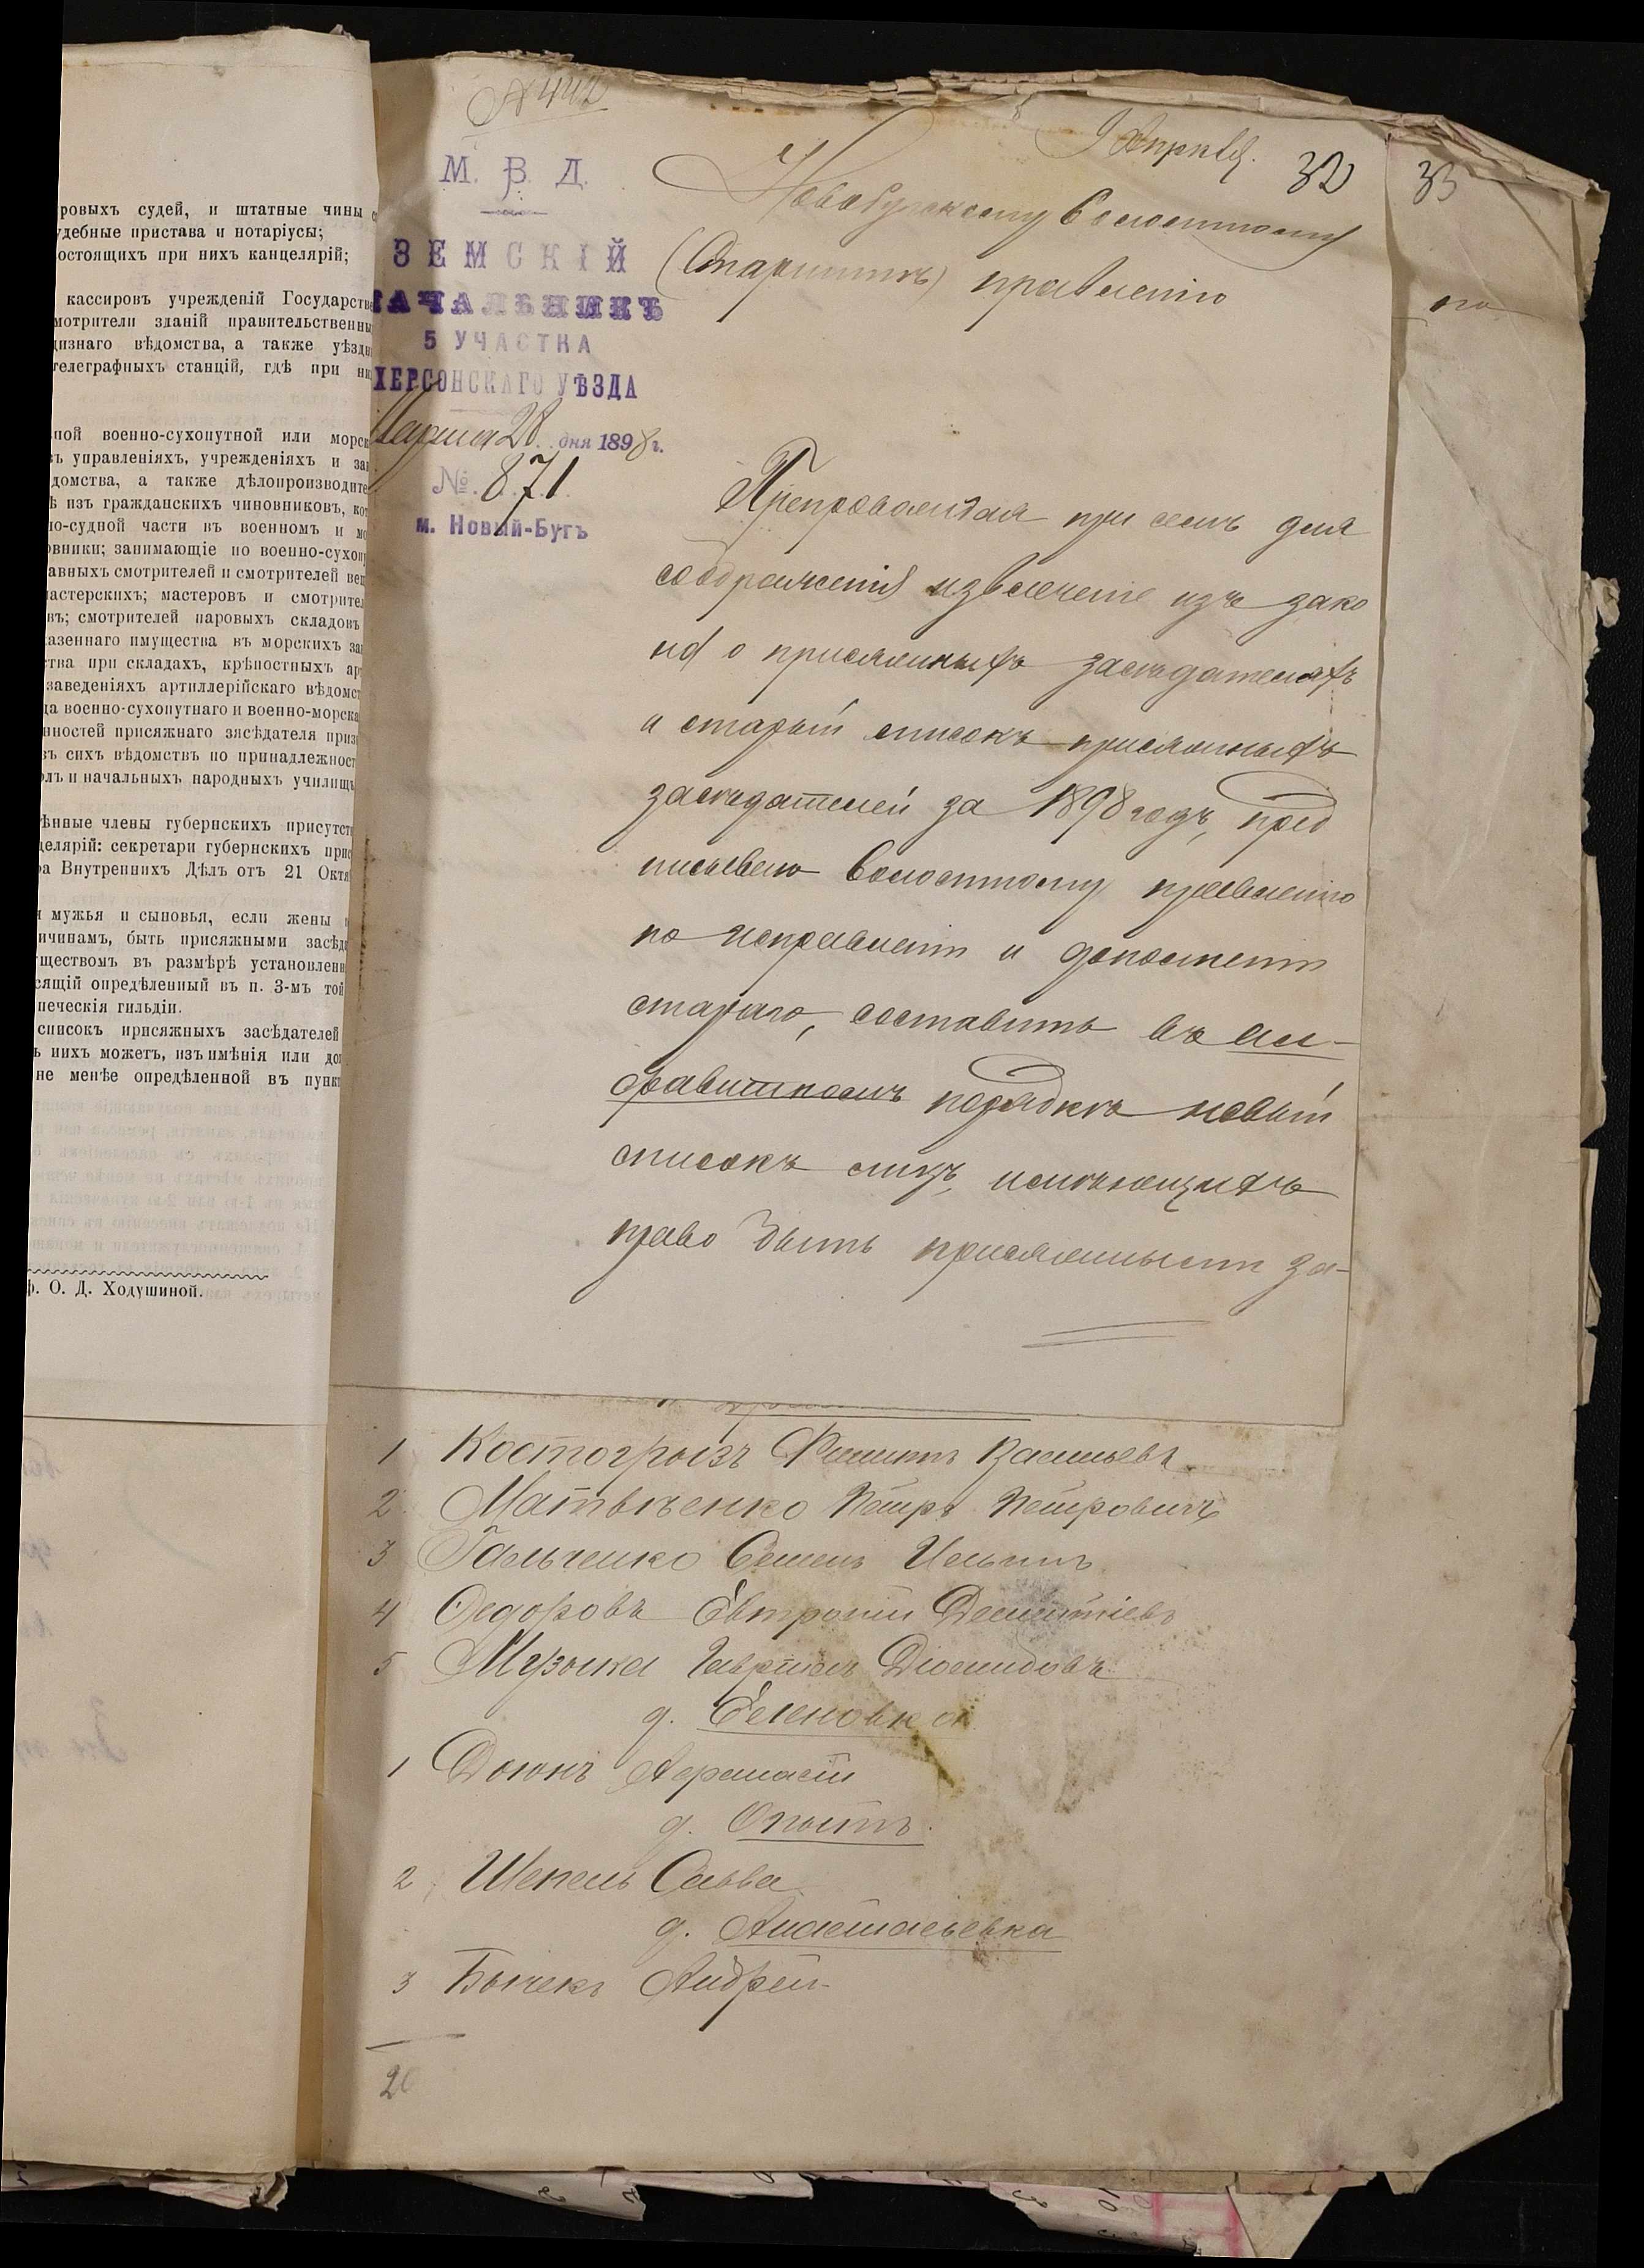 ровыхъ судей, и штатные чины
удебные пристава и нотаріусы;
остоящихъ при нихъ канцелярій;
кассировъ учрежденій Государств
мотрители зданій правительственны
дизнаго вѣдомства, а также уѣздн
телеграфныхъ станцій, гдѣ при ни
ной военно-сухопутной или морск
ъ управленіяхъ, учрежденіяхъ и за
домства, а также дѣлопроизводите
ѣ изъ гражданскихъ чиновниковъ, ко
но-судной части въ военномъ и м
овники; занимающіе по военно-сухоп
авныхъ смотрителей и смотрителей ве
астерскихъ; мастеровъ и смотрител
въ; смотрителей паровыхъ складовъ
азеннаго имущества въ морскихъ за
тва при складахъ, крѣпостныхъ ар
заведеніяхъ артиллерійскаго вѣдомст
да военно-сухопутнаго и военно-морска
нностей присяжнаго засѣдателя приз
въ сихъ вѣдомствъ по принадлежност
лъ и начальныхъ народныхъ училищъ
ѣнные члены губернскихъ присутст
целярій: секретари губернскихъ при
а Внутреннихъ Дѣлъ отъ 21 Октя
и мужья и сыновья, если жены
ичинамъ, быть присяжными засѣд
уществомъ въ размѣрѣ установленн
сящій опредѣленный въ п. 3-мъ той
печескія гильдіи.
списокъ присяжныхъ засѣдателей
ь нихъ можетъ, изъ имѣнія или до
не менѣе опредѣленной въ пунк
ф. О. Д. Ходушиной.
№ 442
9 Апрѣля.
32
33
М. В. Д.
ЗЕМСКІЙ
НАЧАЛЬНИКЪ
5 УЧАСТКА
ХЕРСОНСКАГО УѢЗДА
Марта 28 дня 1898 г.
№ 871
м. Новый-Бугъ
Новобугскому Волостному
(Старшинѣ) правленію
Препровождая при семъ для
соображенія извлеченіе изъ зако
на о присяжныхъ засѣдателяхъ
и старый списокъ присяжныхъ
засѣдателей за 1898 годъ, пред
писываю Волостному правленію
по исправленіи и дополненіи
стараго, составить въ ал-
фавитномъ порядкѣ новый
списокъ лицъ, имѣющихъ
право быть присяжными за-
1 Костогрызъ Филиппъ Васильевъ
2 Матвѣенко Петръ Петровичъ
3 Гальченко Семенъ Ильинъ
4 Ѳедоровъ Евтропій Дементіевъ
5 Музыка Гавріилъ Діомидовъ
д. Еленовка
1 Доюнъ Афанасій
д. Опытъ.
2 Шепель Савва
д. Анастасьевка
3 Бычекъ Андрей
20